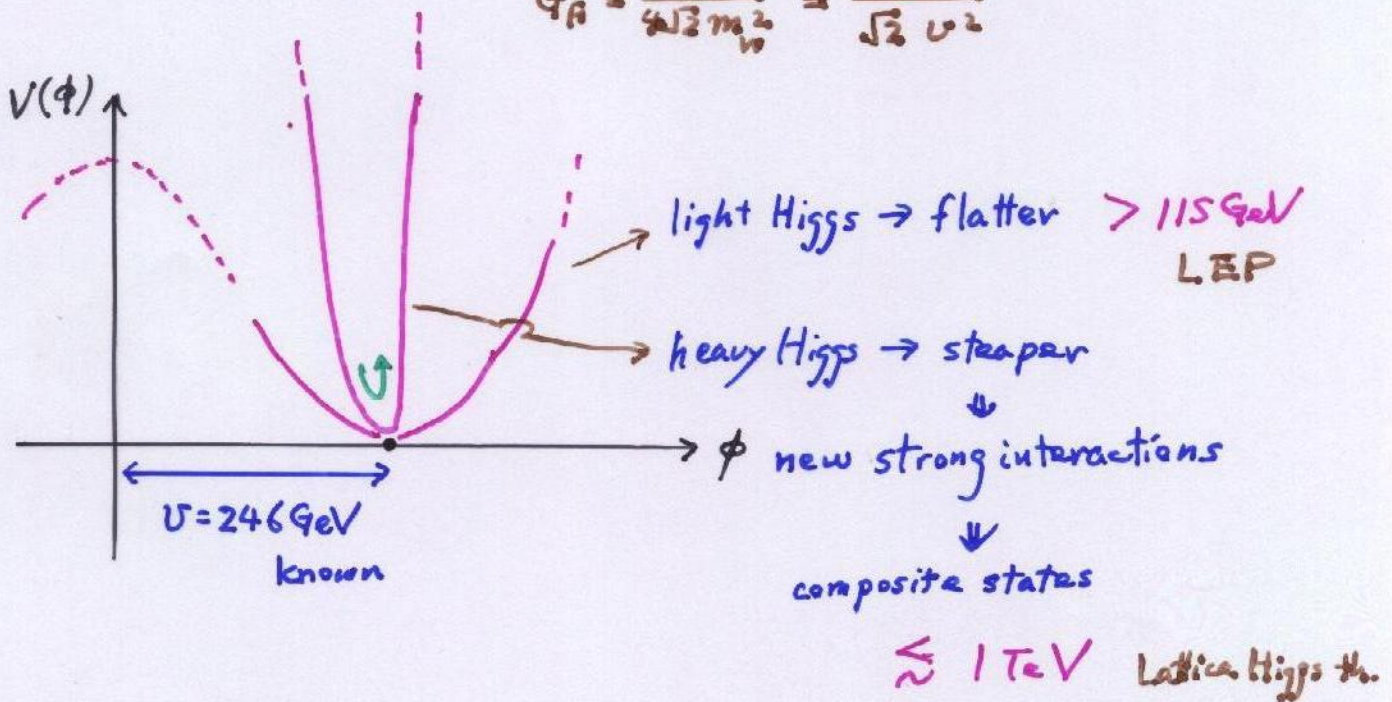 4√2 m_W² = √2 v²
V(φ)
light Higgs → flatter > 115 GeV
LEP
heavy Higgs → steaper
⇓
φ new strong interactions
v = 246 GeV
known
⇓
composite states
≲ 1 TeV Lattice Higgs th.